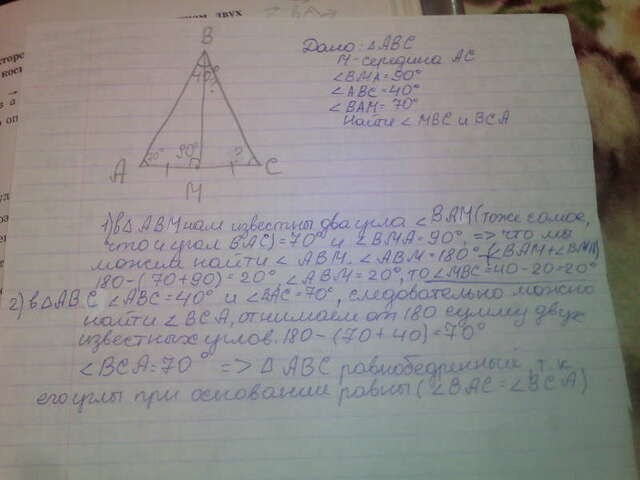 ном двух
B
40°
?
70°
90°
?
A
M
C
Дано: △ABC
M-середина AC
∠BMA=90°
∠ABC=40°
∠BAM=70°
Найти ∠MBC и BCA
1) в △ABM нам известны два угла ∠BAM (тоже самое,
что и угол BAC)=70° и ∠BMA=90°, => что мы
можем найти ∠ABM. ∠ABM=180°-(∠BAM+∠BMA)
180-(70+90)=20° ∠ABM=20°, то ∠MBC=40-20=20°
2) в △ABC ∠ABC=40° и ∠BAC=70°, следовательно можно
найти ∠BCA, отнимаем от 180 сумму двух
известных углов. 180-(70+40)=70°
∠BCA=70° => △ABC равнобедренный, т.к
его углы при основании равны (∠BAC=∠BCA)